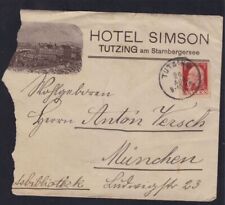 HOTEL SIMSON
TUTZING am Starnbergersee
TUTZING
Wohlgeboren
Herrn Anton Xersch
München
bibliothek Ludwigstr 23